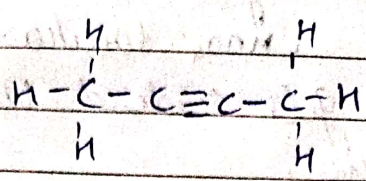 H H
H-C-C≡C-C-H
H H